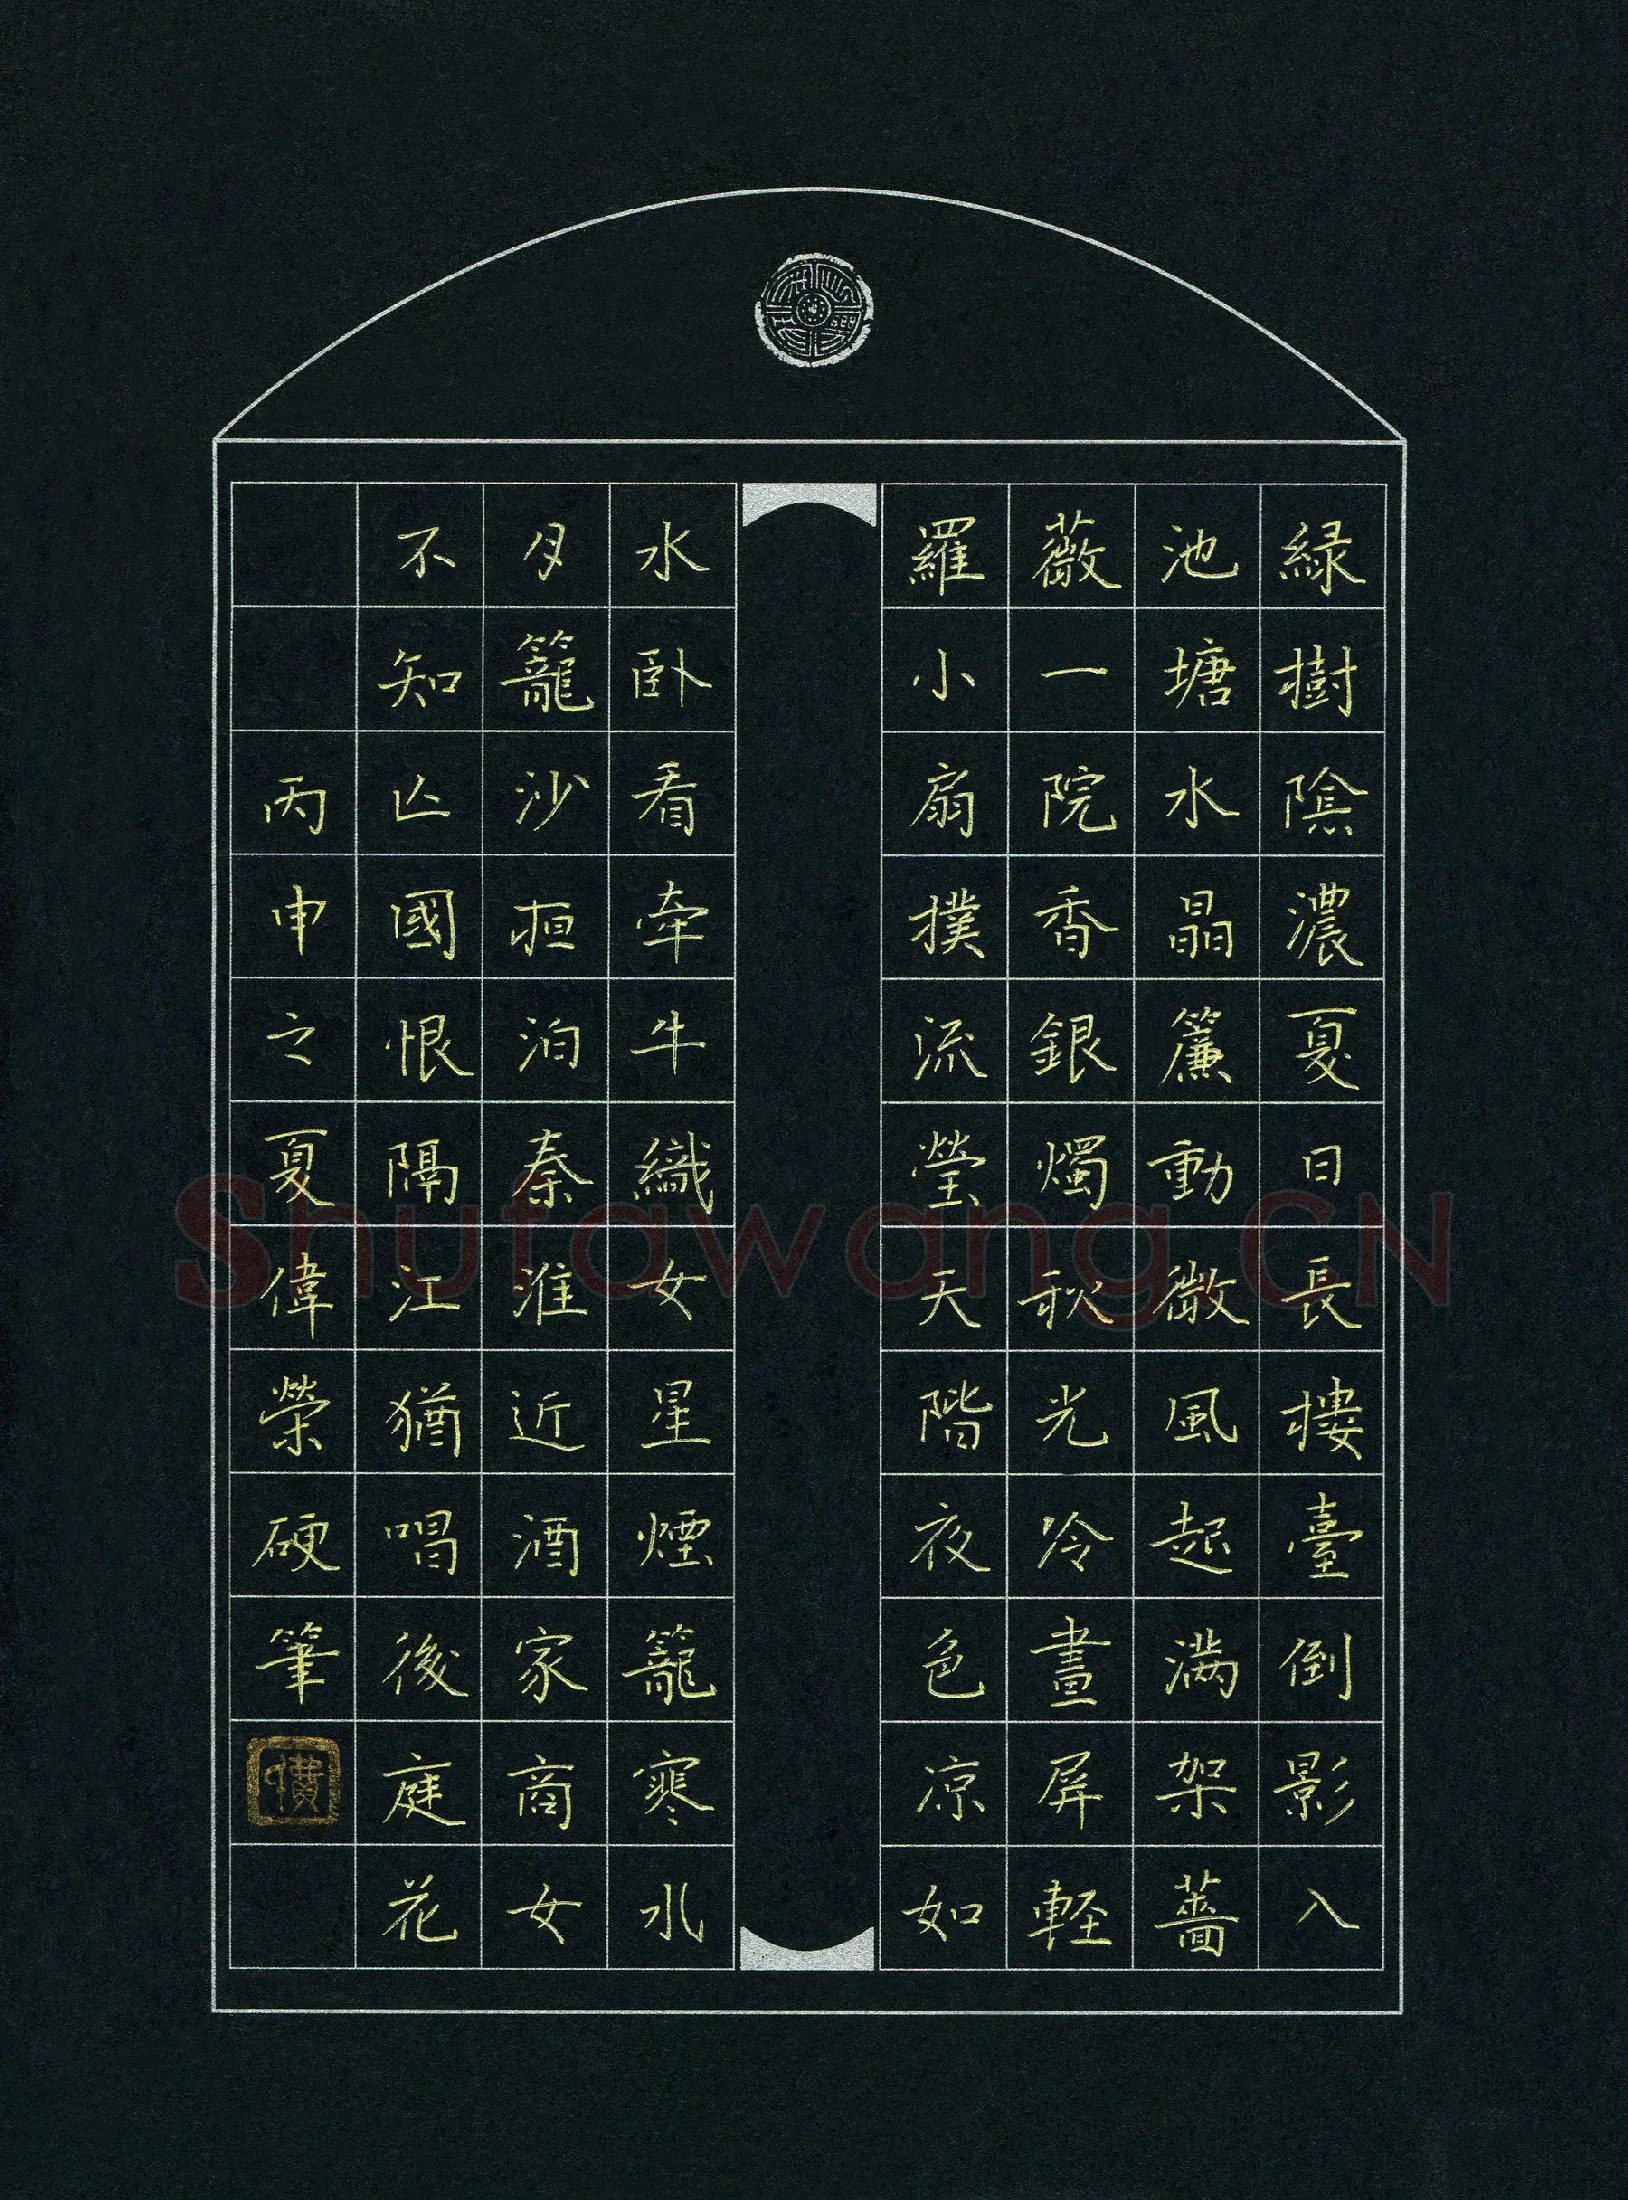 緑樹陰濃夏日長樓臺倒影入
池塘水晶簾動微風起满架薔
薇一院香銀燭秋光冷畫屏輕
羅小扇撲流螢天階夜色凉如
水卧看牽牛織女星煙籠寒水
月籠沙夜泊秦淮近酒家商女
不知亡國恨隔江猶唱後庭花
丙申之夏偉榮硬筆
Shufawang.CN